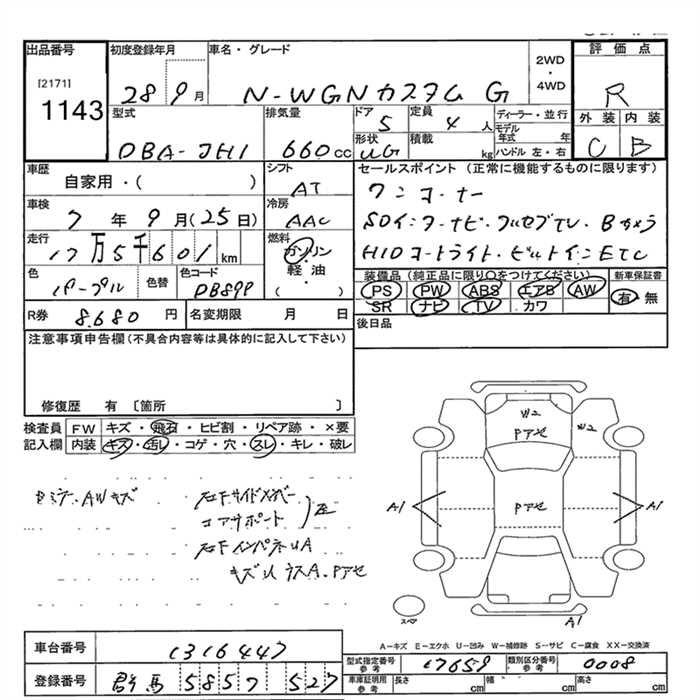 出品番号 初度登録年月 車名・グレード 2WD・4WD 評価点
[2171]
1143 28 9月 N-WGNカスタム G R
型式 排気量 ドア 定員 ディーラー・並行 外装 内装
DBA-JH1 660cc 5 4人 モデル年式 年 C B
形状 積載 ハンドル 左・右
UG kg
車歴 シフト セールスポイント(正常に機能するものに限ります)
自家用・( ) AT ワンオーナー
車検 冷房
7年9月(25日) AAC SDインターナビ・フルセグTV・Bカメラ
走行 燃料
17万5千601km ガソリン・軽油・( ) HIDオートライト・ビルトインETC
色 色替 色コード 装備品(純正品に限り○をつけてください) 新車保証書
パープル PB899 PS PW ABS エアB AW 有・無
SR ナビ TV カワ
R券 8,680円 名変期限 月 日 後日品
注意事項申告欄(不具合内容等は具体的に記入して下さい)
修復歴 有〔箇所 〕
検査員 FW キズ・飛石・ヒビ割・リペア跡・×要
記入欄 内装 キズ・汚レ・コゲ・穴・スレ・キレ・破レ
W2
Pアセ W2
AWキズ 右Fサイドメンバー
コアサポート
右FインパネUA A1 Pアセ A1
Pアセ
スペア A1
A-キズ E-エクホ U-凹み W-補修跡 S-サビ C-腐食 XX-交換済
車台番号 1316447 型式指定番号 参考 17659 類別区分番号 参考 0008
登録番号 群馬 585フ 527 車庫証明用 参考 長さ cm 幅 cm 高さ cm